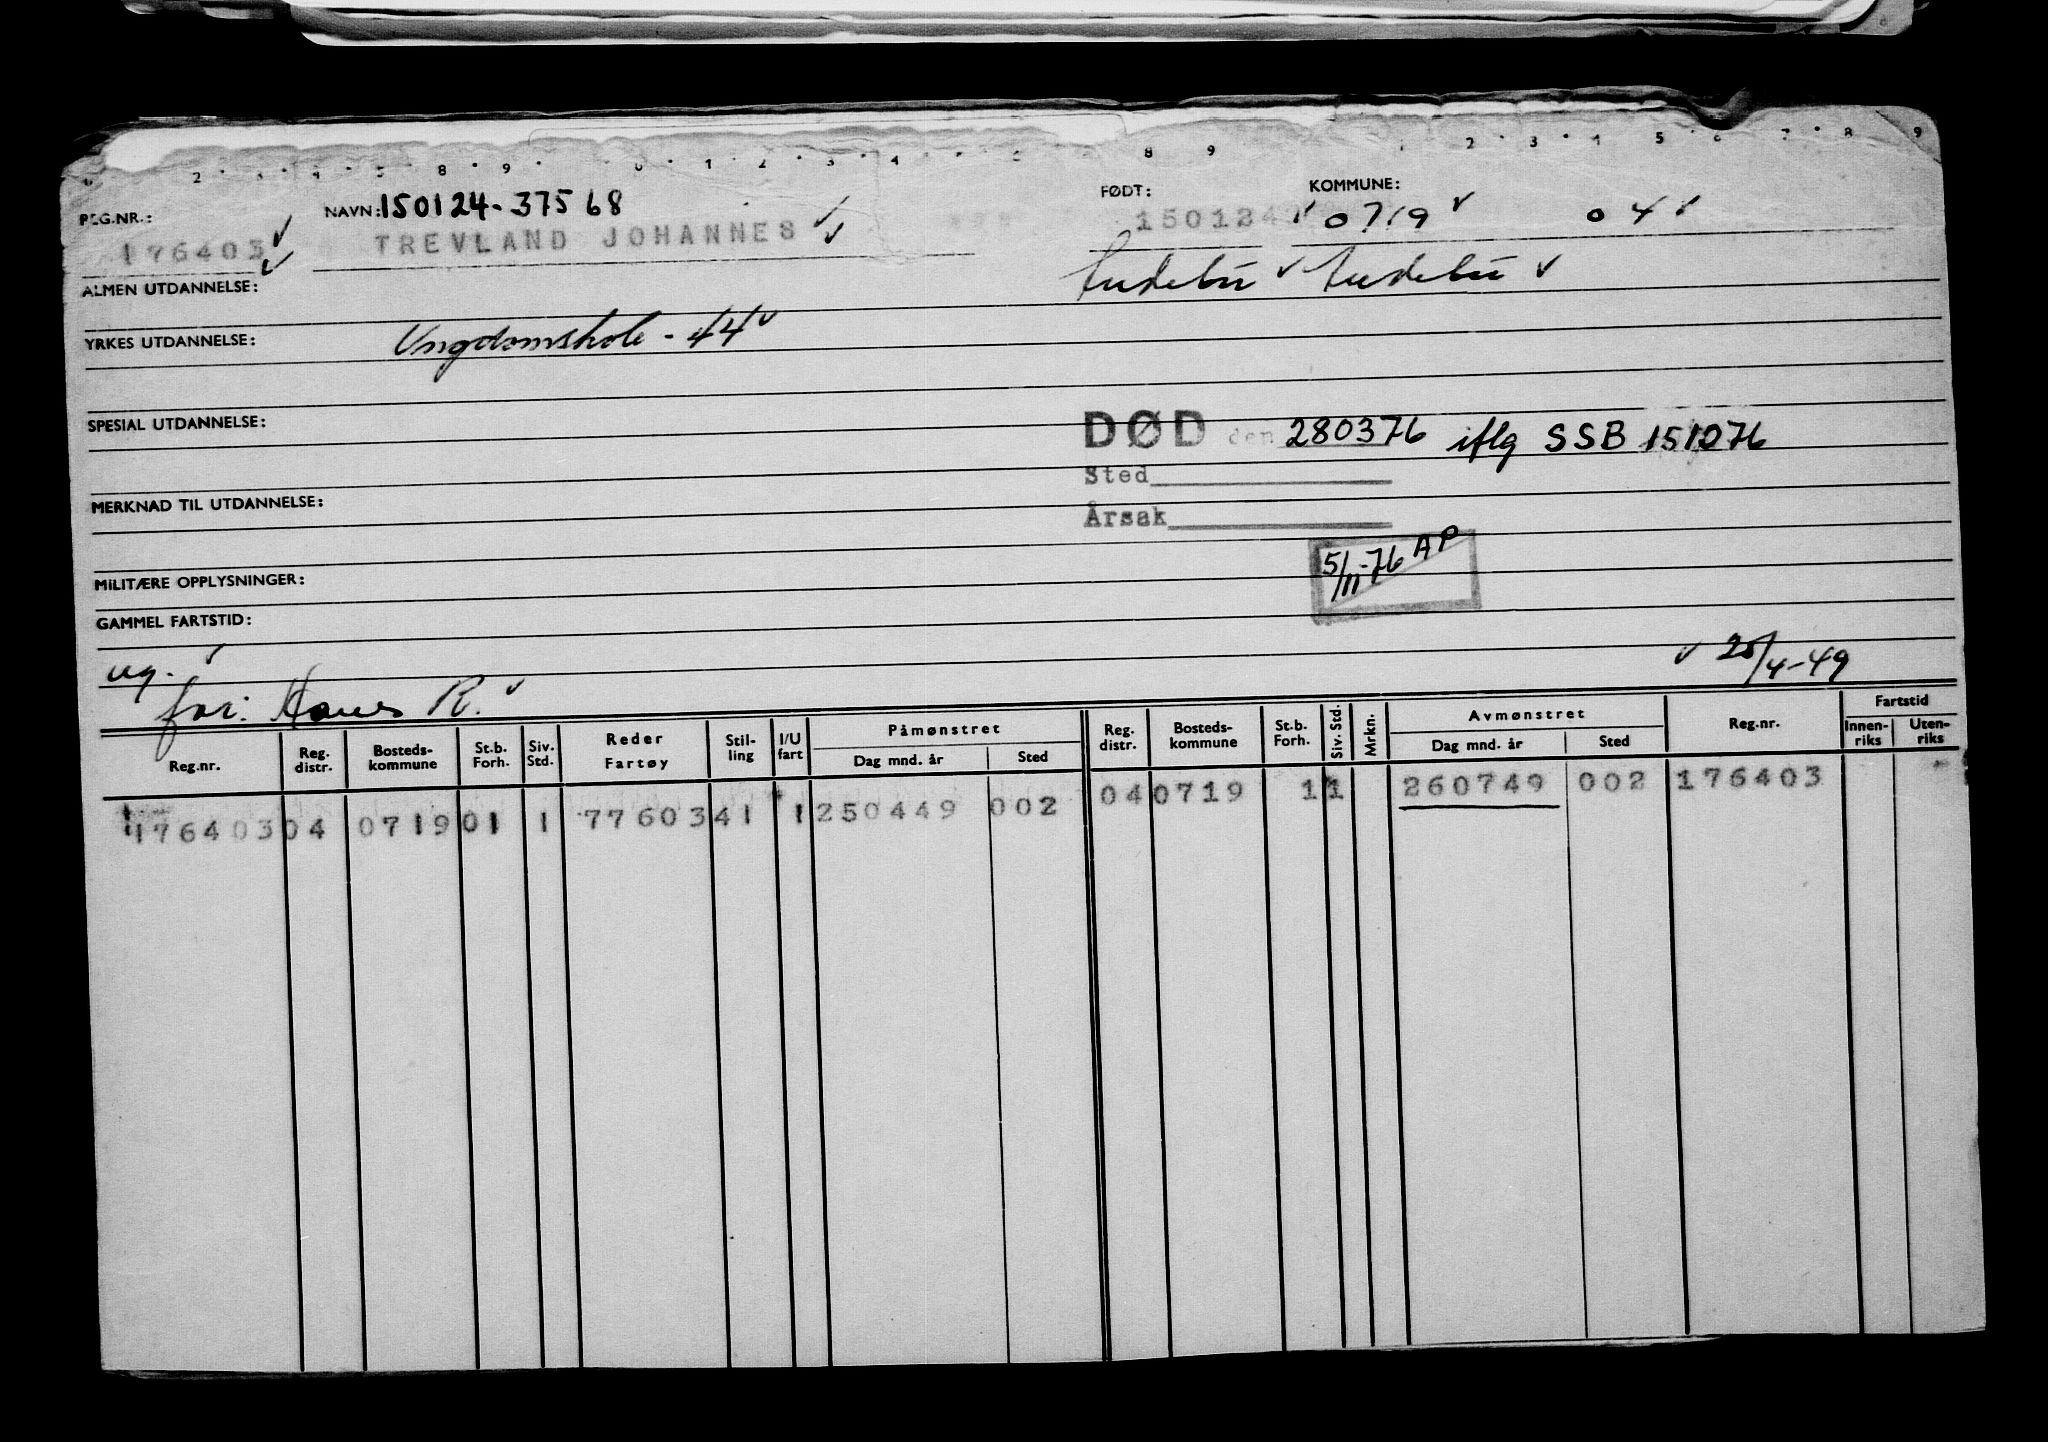 REG.NR.: NAVN: 150124-37568 FØDT: KOMMUNE:
176403 TREVLAND JOHANNES 150124 0719 04
ALMEN UTDANNELSE: Andebu Andebu
YRKES UTDANNELSE: Ungdomskole - 44
SPESIAL UTDANNELSE:
DØD den 280376 iflg SSB 151076
Sted
MERKNAD TIL UTDANNELSE:
Årsak
5/11-76 AP
MILITÆRE OPPLYSNINGER:
GAMMEL FARTSTID:
ug. 25/4-49
far: Hans R.
Reg.nr. Reg. distr. Bosteds-kommune St.b. Forh. Siv. Std. Reder Fartøy Stil-ling I/U fart Påmønstret Dag mnd. år Sted Reg. distr. Bosteds-kommune St.b. Forh. Siv. Std. Mrkn. Avmønstret Dag mnd. år Sted Reg.nr. Fartstid Innen-riks Uten-riks
176403 04 0719 01 1 77603 41 1 250449 002 04 0719 1 1 260749 002 176403